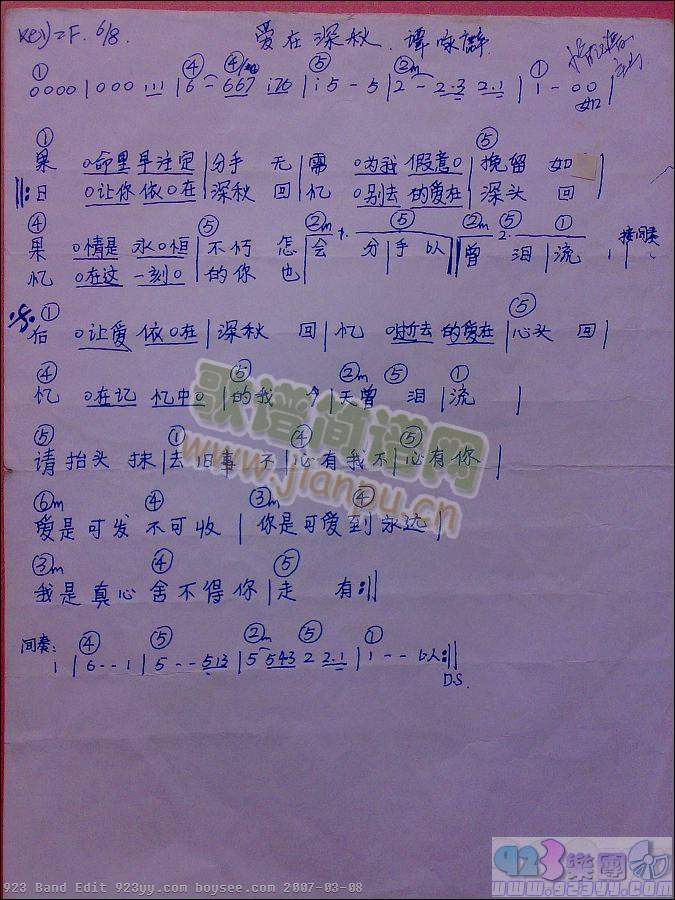 Key=F. 6/8. 爱在深秋. 谭咏麟
① ④ ④/ ⑤ ②m ①
0000 | 000 111 | 6 - 667 i76 | i5 - 5 | 2 - 2·3 2·1 | 1 - 00 如 |
① ⑤
果 0命里早注定 | 分手 无 需 0为我 假意0 | 挽留 如 |
‖: 日 0让你 依0在 | 深秋 回 忆 0别去 的爱在 | 深头 回
④ ⑤ ②m 1. ⑤ ②m 2. ⑤ ①
果 0情是 永0恒 | 不朽 怎 | 会 分 | 手 以 ‖ 曾 泪 | 流 , | 接间奏
忆 0在这 一刻0 | 的你 也
① ⑤
后 0让爱 依0在 | 深秋 回 | 忆 0逝去 的爱在 | 心头 回 |
④ ⑤ ②m ⑤ ①
忆 0在记 忆中0 | 的我 今 | 天曾 泪 | 流 |
⑤ ① ④ ⑤
请 抬头 抹 | 去 旧事 不 | 心有我不 | 心有你 |
⑥m ④ ③m ④
爱是可发不可收 | 你是可爱到永远 |
③m ④ ⑤
我是真心舍不得你 | 走 有 :‖
间奏: ④ ⑤ ②m ⑤ ①
1 | 6 - - 1 | 5 - - 513 | 5 543 2 2·1 | 1 - - 以人 :‖
D.S.
歌谱简谱网
www.jianpu.cn
923 Band Edit 923yy.com boysee.com 2007-03-08
923樂團
www.923yy.com